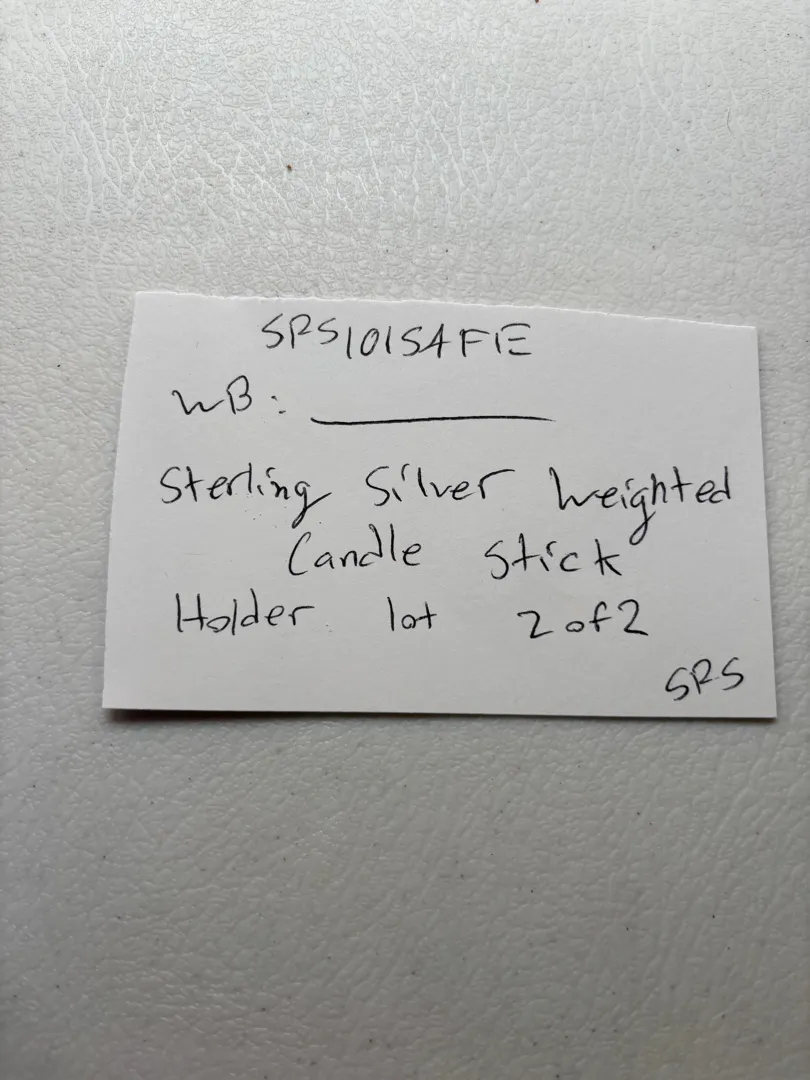 SRS101SAFE
WB: ________
Sterling Silver Weighted
Candle Stick
Holder lot 2 of 2
SRS